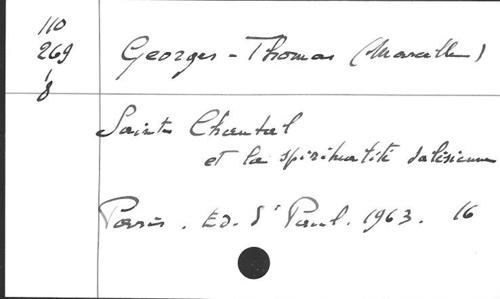 110
269
8
Georges-Thomas (Marcelle)
Sainte Chantal
et la spiritualité salésienne
Paris. Ed. St Paul. 1963. 16